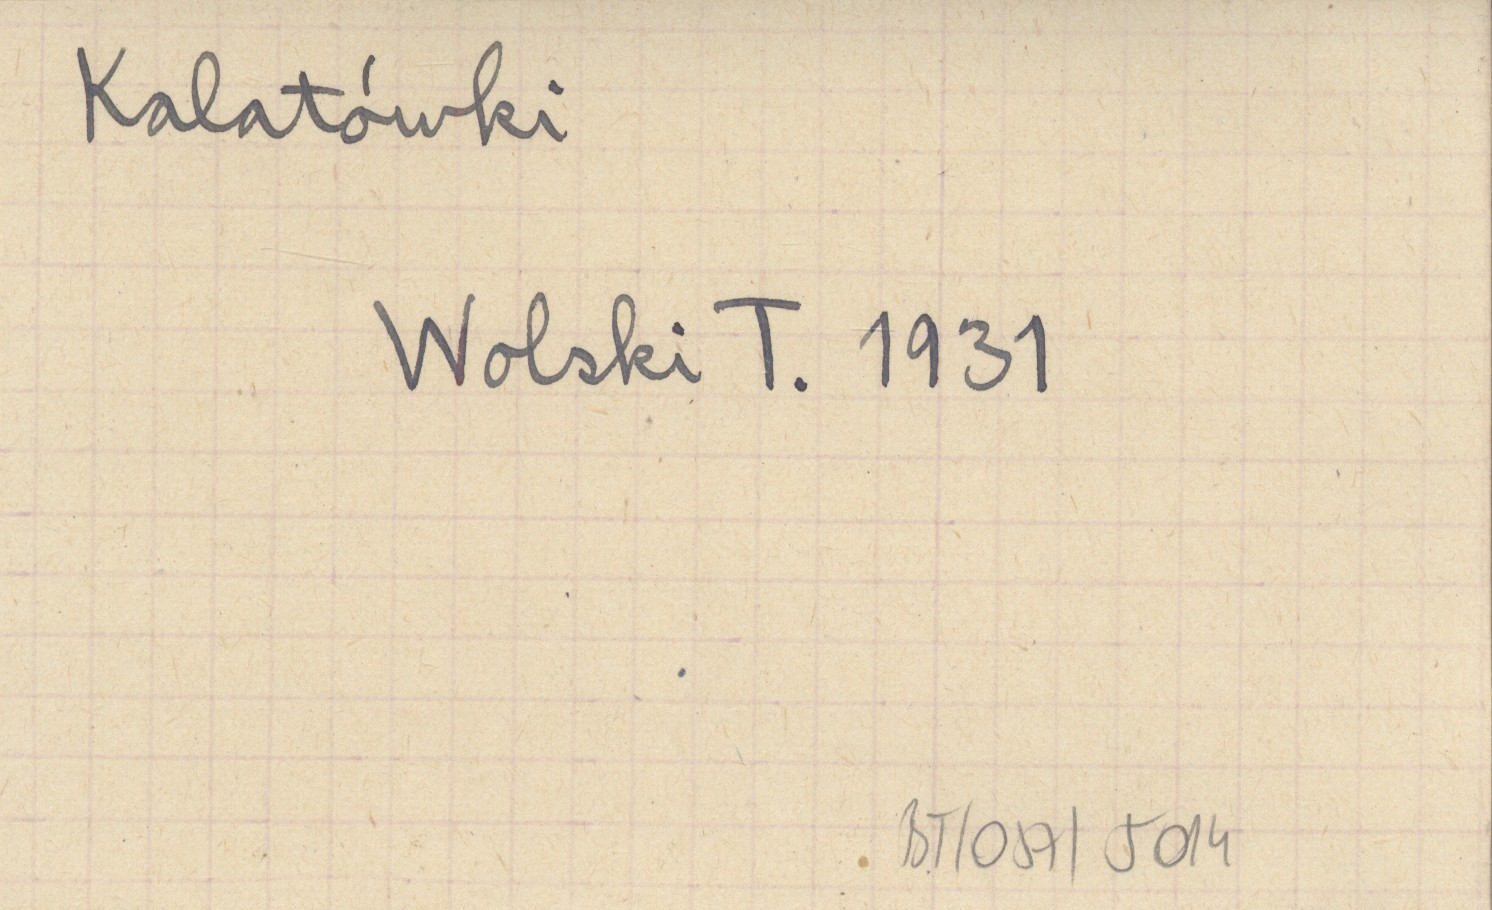 Kalatówki
Wolski T. 1931
BT/087/5014